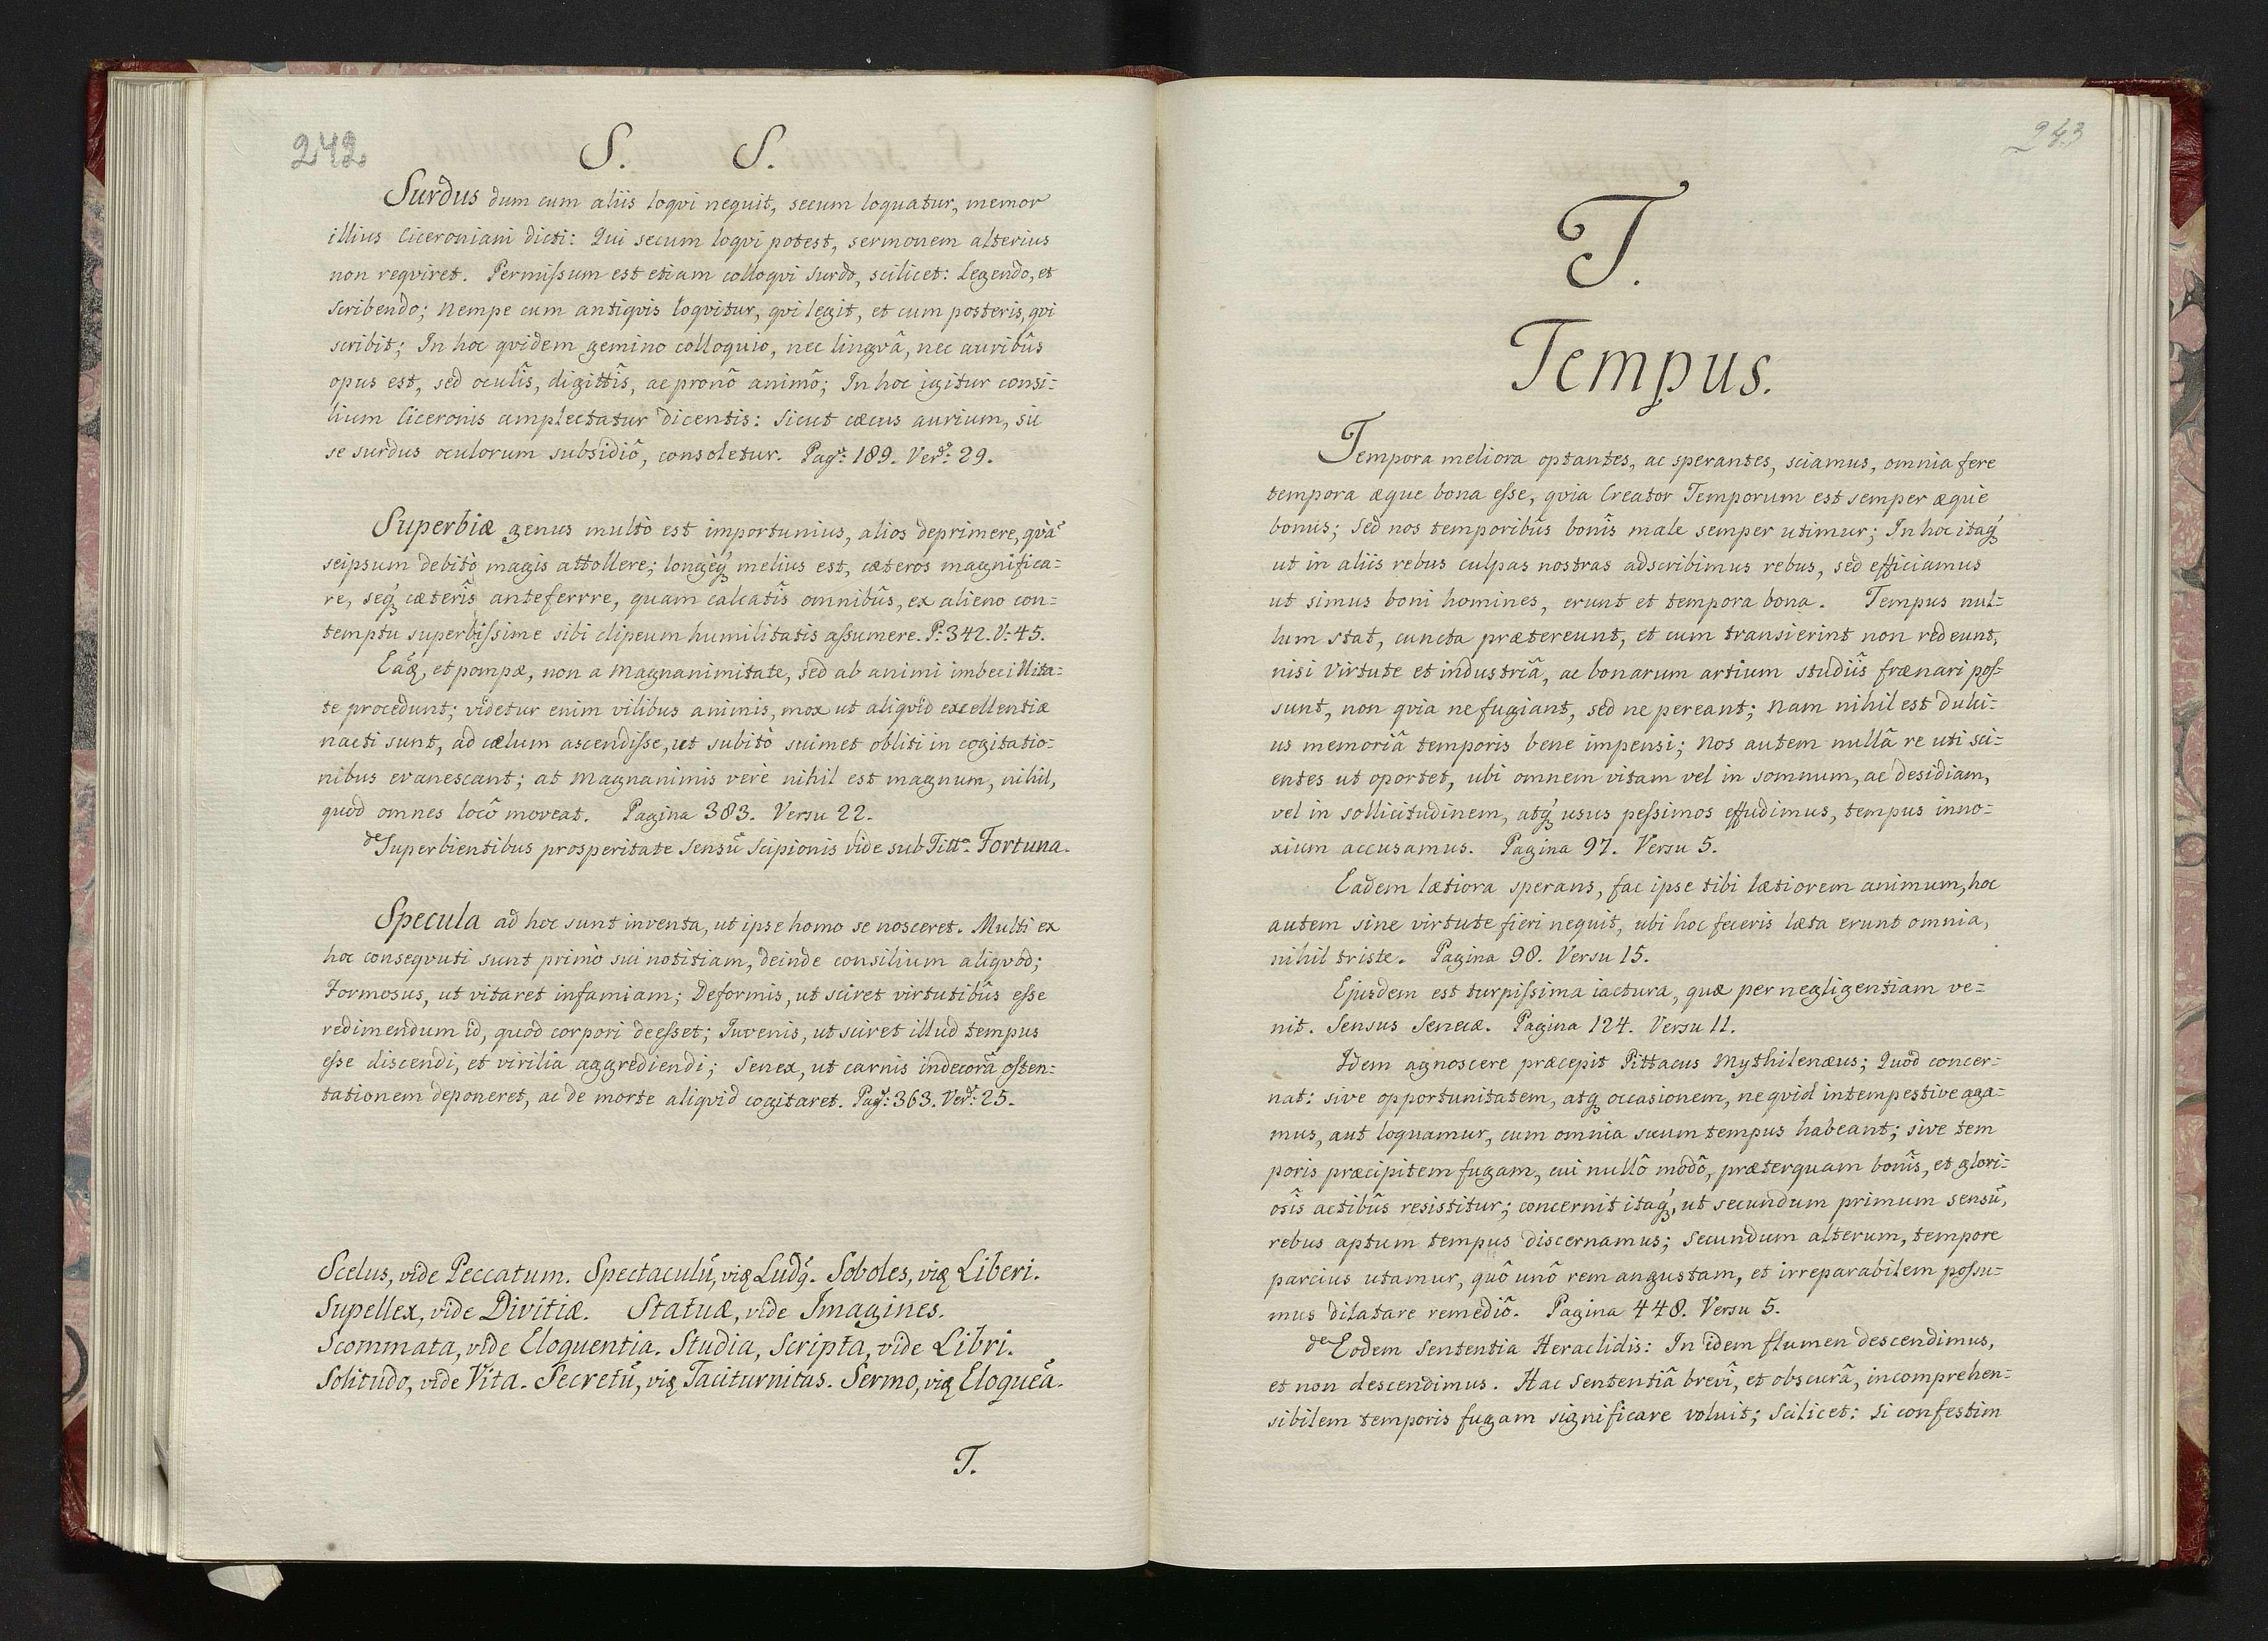 242
S. S.
Surdus dum cum aliis loqvi nequit, secum loquatur, memor
illius Ciceroniani dicti: Qui secum loqvi potest, sermonem alterius
non reqviret. Permissum est etiam colloqvi surdo, scilicet: Legendo, et
scribendo; Nempe cum antiqvis loqvitur, qvi legit, et cum posteris, qvi
scribit; In hoc qvidem gemino colloquio, nec lingvâ, nec auribûs
opus est, sed oculîs, digittîs, ac pronô animô; In hoc igitur consi=
lium Ciceronis amplectatur dicentis: Sicut cæcus aurium, sic
se surdus oculorum subsidiô, consoletur. Pagâ: 189. Versû: 29.
Superbiæ genus multò est importunius, alios deprimere, qvã
seipsum debitò magis attollere; longèq́ꝫ melius est, cæteros magnifica=
re, seq́ꝫ cæterîs anteferrre, quam calcatîs omnibûs, ex alieno con=
temptu superbissime sibi clipeum humilitatis assumere. P: 342. V: 45.
Eaꝗ, et pompæ, non a Magnanimitate, sed ab animi imbecillita=
te procedunt; videtur enim vilibus animis, mox ut aliqvid excellentiæ
nacti sunt, ad cælum ascendisse, ut subitò suimet obliti in cogitatio=
nibus evanescant; at Magnanimis verè nihil est magnum, nihil,
quod omnes locô moveat. Pagina 383. Versu 22.
de Superbientibus prosperitate Sensũ Scipionis vide sub Titto. Fortuna.
Specula ad hoc sunt inventa, ut ipse homo se nosceret. Multi ex
hoc conseqvuti sunt primò sui notitiam, deinde consilium aliqvod;
Formosus, ut vitaret infamiam; Deformis, ut sciret virtutibûs esse
redimendum id, quod corpori deesset; Iuvenis, ut sciret illud tempus
esse discendi, et virilia aggrediendi; Senex, ut carnis indecorã osten=
tationem deponeret, ac de morte aliqvid cogitaret. Pagâ: 363. Versû: 25.
Scelus, vide Peccatum. Spectaculũ, viꝗ Ludꝗ. Soboles, viꝗ Liberi.
Supellex, vide Divitiæ. Statuæ, vide Imagines.
Scommata, vide Eloquentia. Studia, Scripta, vide Libri.
Solitudo, vide Vita. Secretũ, viꝗ Taciturnitas. Sermo, viꝗ Eloquẽa.
T.
243
T.
Tempus.
Tempora meliora optantes, ac sperantes, sciamus, omnia fere
tempora æque bona esse, qvia Creator Temporum est semper æquè
bonus; Sed nos temporibûs bonîs male semper utimur; In hoc itaq́ꝫ
ut in aliis rebus culpas nostras adscribimus rebus, sed efficiamus
ut simus boni homines, erunt et tempora bona. Tempus nul=
lum stat, cuncta prætereunt, et cum transierint non redeunt,
nisi Virtute et industriâ, ac bonarum artium studiîs frænari pos=
sunt, non qvia ne fugiant, sed ne pereant; Nam nihil est dulci=
us memoriâ temporis bene impensi; Nos autem nullâ re uti sci=
entes ut oportet, ubi omnem vitam vel in somnum, ac desidiam,
vel in sollicitudinem, atq́ꝫ usus pessimos effudimus, tempus inno=
xium accusamus. Pagina 97. Versu 5.
Eadem lætiora sperans, fac ipse tibi lætiorem animum, hoc
autem sine virtute fieri nequit, ubi hoc feceris læta erunt omnia,
nihil triste. Pagina 98. Versu 15.
Ejusdem est turpissima iactura, quæ per negligentiam ve=
nit. Sensus Senecæ. Pagina 124. Versu 11.
Idem agnoscere præcepit Pittacus Mythilenæus; Quod concer=
nat: sive opportunitatem, atqꝫ occasionem, ne qvid intempestive aga=
mus, aut loquamur, cum omnia suum tempus habeant; sive tem
poris præcipitem fugam, cui nullô modô, præterquam bonîs, et glori=
osîs actibûs resistitur; concernit itaq́ꝫ, ut secundum primum sensũ,
rebus aptum tempus discernamus; Secundum alterum, tempore
parcius utamur, quô unô rem angustam, et irreparabilem possu=
mus dilatare remediô. Pagina 448. Versu 5.
de Eodem Sententia Heraclidis: In idem flumen descendimus,
et non descendimus. Hac Sententiâ brevî, et obscurâ, incomprehen=
sibilem temporis fugam significare voluit; Scilicet: Si confestim